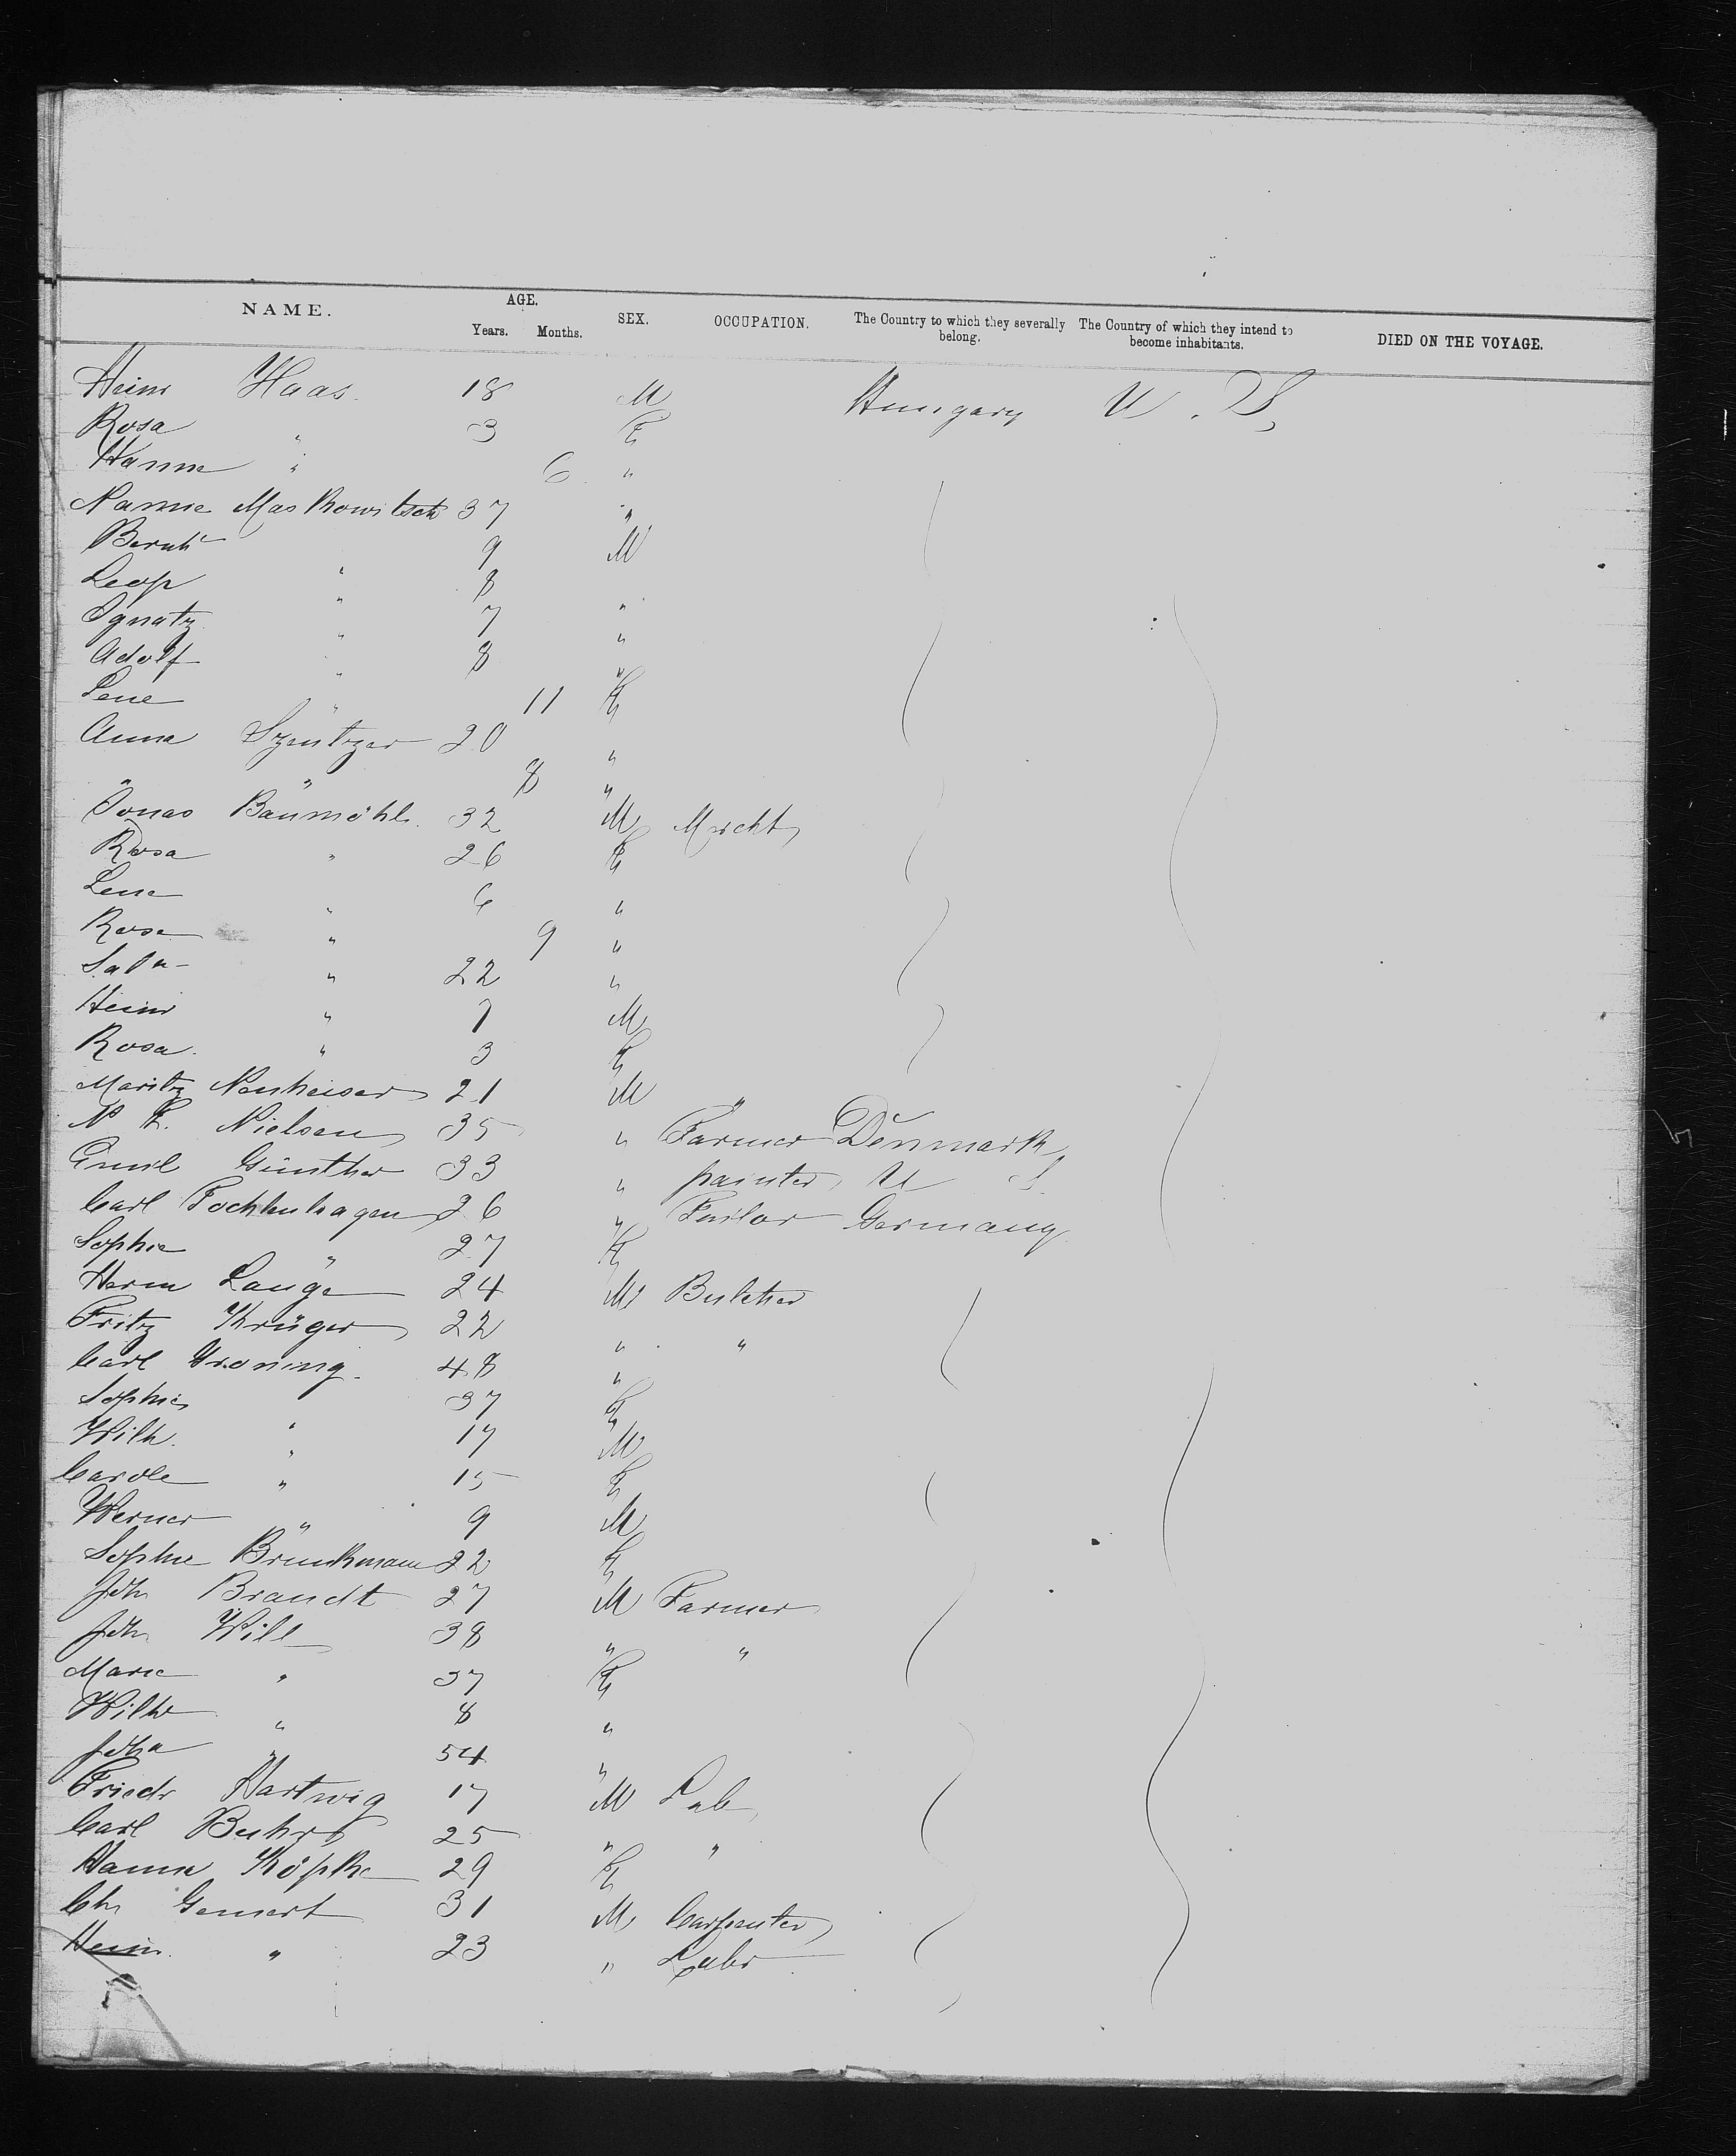 NAME. AGE. Years. Months. SEX. OCCUPATION. The Country to which they severally belong. The Country of which they intend to become inhabitants. DIED ON THE VOYAGE.
Heinr Haas. 18 M Hungary U. S.
Rosa " 3 F
Hanne " 6 "
Nannie Maskowitsch 37 "
Bernh " 9 M
Leop " 8 "
Ignatz " 7 "
Adolf " 8 "
Lene " 11 F
Anna Szentzer 20 "
" " 8 "
Jonas Baumöhl. 32 M Mercht
Rosa " 26 F
Lene " 6 "
Rosa " 9 "
" 22 "
Heinr " 7 M
Rosa. " 3 F
Moritz Neuheiser 21 M "
N L. Nielsen 35 " Farmer Denmark
Emil Günther 33 " painter U S.
Carl Tochtenhagen 26 " Tailor Germany
Sophie " 27 F
Herm Lange 24 M Butcher
Fritz Krüger 22 " "
Carl Groning. 48 "
Sophie " 37 F
Wilh. " 17 M
Carole " 15 F
Werner " 9 M
Sophie Brinkmann 22 F
Joh Brandt 27 M Farmer
Joh Will 38 " "
Marie " 37 F
Wilhe " 8 "
Joha " 54 "
Friedr Hartwig 17 M Lab
Carl Buhrs 25 " "
Hanna Köpke 29 F
Chr Gemert 31 M Carpenter
Heinr. " 23 " Labr